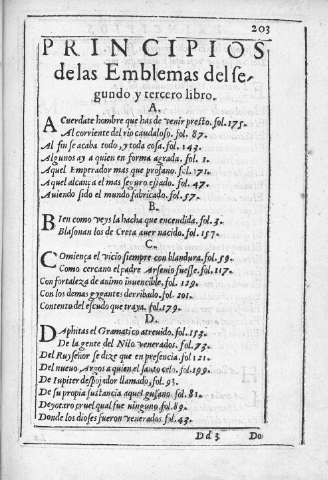 203
PRINCIPIOS
de las Emblemas del se-
gundo y tercero libro.
A.
Acuerdate hombre que has de venir presto. fol. 175.
Al corriente del rio caudaloso. fol. 87.
Al fin se acaba todo, y toda cosa. fol. 143.
Algunos ay a quien en forma agrada. fol. 1.
Aquel Emperador mas que profano. fol. 171.
Aquel alcança el mas seguro estado. fol. 47.
Auiendo sido el mundo fabricado. fol. 57.
B.
Bien como veys la hacha que encendida. fol. 3.
Blasonan los de Creta auer nacido. fol. 157.
C.
Comiença el vicio siempre con blandura. fol. 59.
Como cercano el padre Arsenio fuesse. fol. 117.
Con fortaleza de animo inuencible. fol. 129.
Con los demas gygantes derribado. fol. 101.
Contento del escudo que traya. fol. 179.
D.
Daphitas el Gramatico atreuido. fol. 153.
De la gente del Nilo venerados. fol. 73.
Del Ruyseñor se dize que en presencia. fol 121.
Del nueuo Argos a quien el santo celo. fol. 199.
De Iupiter despojador llamado. fol. 93.
De su propia sustancia aquel gusano. fol. 81.
Deyotaro cruel qual fue ninguno. fol. 89.
Donde los dioses fueron venerados. fol. 43.
Dd 3 Do